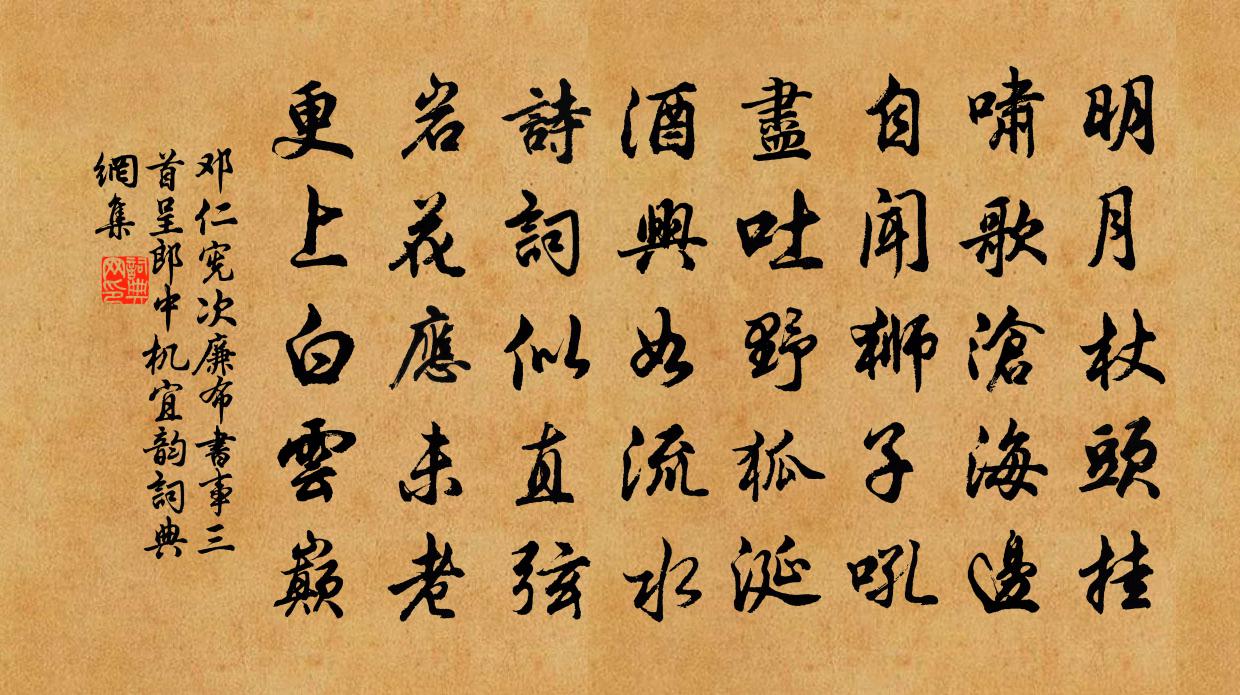 明月杖頭挂
嘯歌滄海邊
自闻狮子吼
盡吐野狐涎
酒興如流水
詩詞似直弦
岩花應未老
更上白雲巔
邓仁宪次廉布書事三
首呈郎中机宜韵詞典
網集
詞典网印